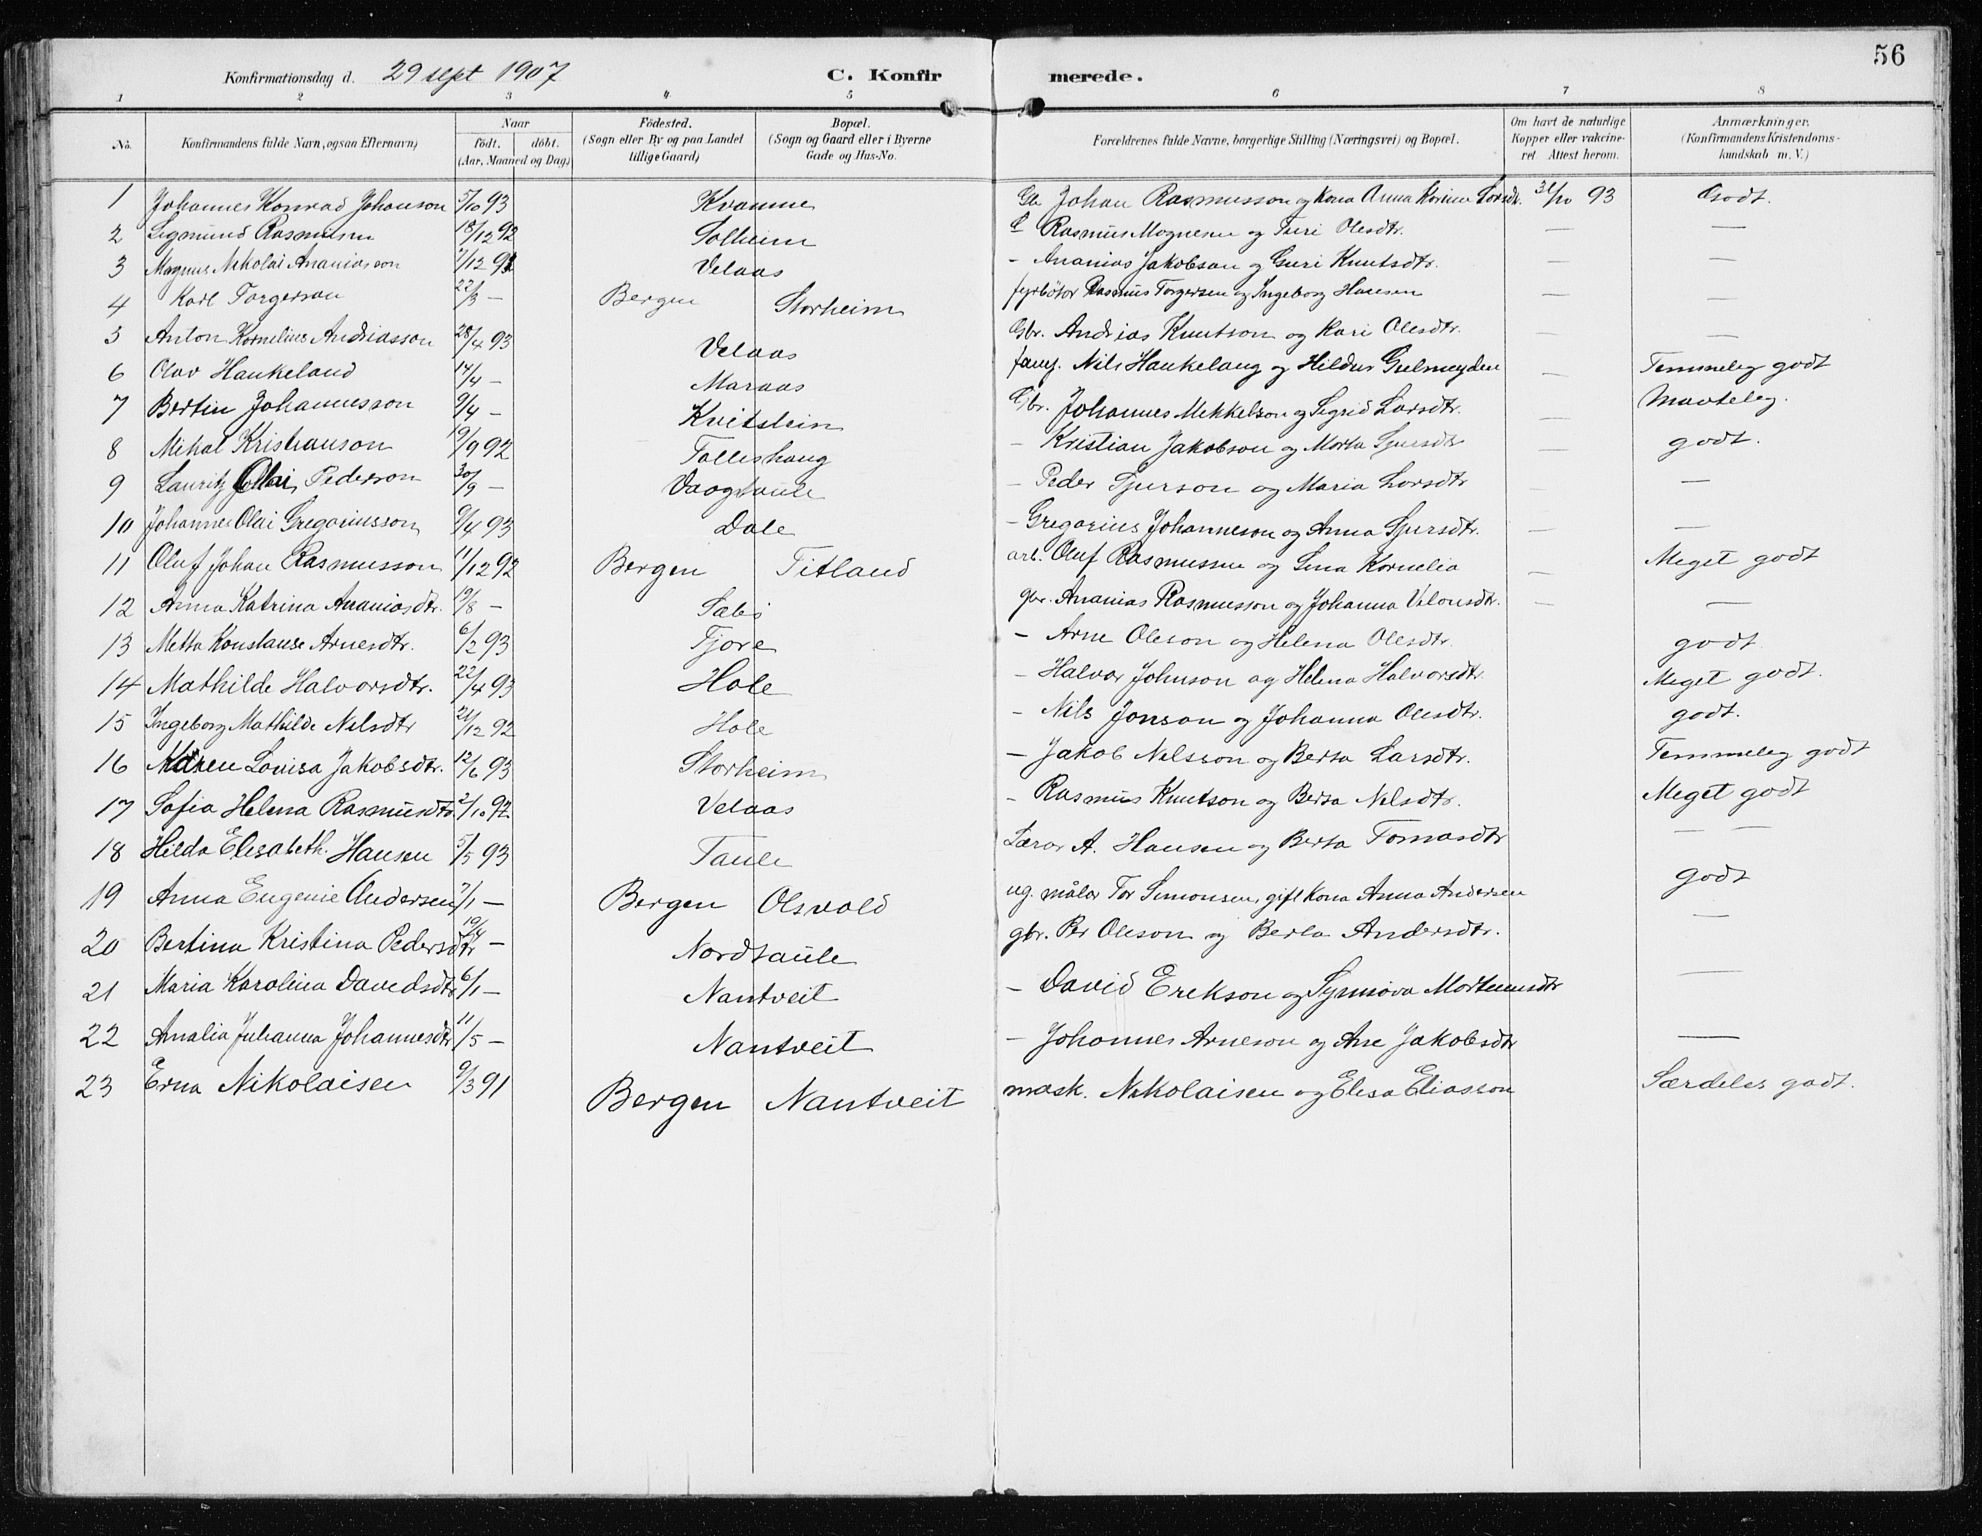 56
Konfirmationsdag d. 29 sept 1907 C. Konfirmerede.
1 2 3 4 5 6 7 8
No. Konfirmandens fulde Navn, ogsaa Efternavn) Naar födt. döbt. (Aar, Maaned og Dag) Födested. (Sogn eller By og paa Landet tillige Gaard) Bopæl. (Sogn og Gaard eller i Byerne Gade og Hus-No. Forældrenes fulde Navne, borgerlige Stilling (Næringsvei) og Bopæl. Om havt de naturlige Kopper eller vakcineret. Attest herom. Anmærkninger. (Konfirmandens Kristendomskundskab m. V.)
1 Johannes Konrad Johanson 5/10 93 Kvamme Johan Rasmusson og Kona Anna Korina Larsdt. 31/10 93 Godt.
2 Sigmund Rasmusen 18/12 92 Solheim Rasmus Mognesen og Turi Olesdtr. — —
3 Magnus Nikolai Ananiasson /12 92 Velaas - Ananias Jakobson og Guri Knutsdtr. — —
4 Karl Torgerson 22/3 — Bergen Storheim fyrbötar Rasmus Torgersen og Ingeborg Hansen — —
5 Anton Kornelius Andriasson 28/4 93 Velaas Gbr. Andrias Knutson og Kari Olesdtr. — —
6 Olav Haukeland 14/4 — Maraas Nils Haukeland og Hildur Gulmeyden — Temmeleg godt
7 Bertin Johannesson 9/4 — Kvitstein Gbr. Johannes Mekkelson og Sigrid Larsdtr. — Maateleg.
8 Mikal Kristianson 19/9 92 Falleshaug - Kristian Jakobson og Marta Sjursdtr — godt.
9 Lauritz Olai Pederson 30/9 — Vaagtaule - Peder Sjurson og Maria Larsdtr — —
10 Johannes Olai Gregoriusson 9/4 93 Dale - Gregorius Johanneson og Anna Sjursdtr. — —
11 Oluf Johan Rasmusson 11/12 92 Bergen Titland arb. Oluf Rasmussen og Lina Kornelia — Meget godt
12 Anna Katrina Ananiasdtr. 19/8 — Sabö gbr. Ananias Rasmusson og Johanna Vilonsdtr. — —
13 Metta Konstanse Arnesdtr. 6/2 93 Tjore - Arne Oleson og Helena Olesdtr. godt.
14 Mathilde Halvorsdtr. 22/4 93 Hole - Halvor Johnson og Helena Halvorsdtr. Meget godt.
15 Ingeborg Mathilde Nilsdtr 21/12 92 Hole - Nils Jonson og Johanna Olesdtr. godt.
16 Maren Lovisa Jakobsdtr. 12/6 93 Storheim - Jakob Nilsson og Berta Larsdtr. Temmeleg godt
17 Sofia Helena Rasmusdtr 2/10 92 Velaas - Rasmus Knutson og Berta Nilsdtr. Meget godt
18 Hilda Elisabeth Hansen 5/5 93 Taule Lærar A. Hansen og Berta Tomasdtr — —
19 Anna Eugenie Andersen 7/1 — Bergen Olsvold ug. målar Tor Simonsen, gift Kona Anna Andersen godt
20 Bertina Kristina Pedersdtr 19/4 — Nordtaule gbr. Per Oleson og Berta Andersdtr. —
21 Maria Karolina Davidsdtr 6/1 — Nautveit - David Erekson og Synnöva Mortensdtr —
22 Amalia Juhanna Johannesdtr 11/5 — Nautveit - Johannes Arneson og Ane Jakobsdtr —
23 Erna Nikolaisen 9/3 91 Bergen Nautveit mask. Nikolaisen og Elisa Eliasson Særdeles godt.